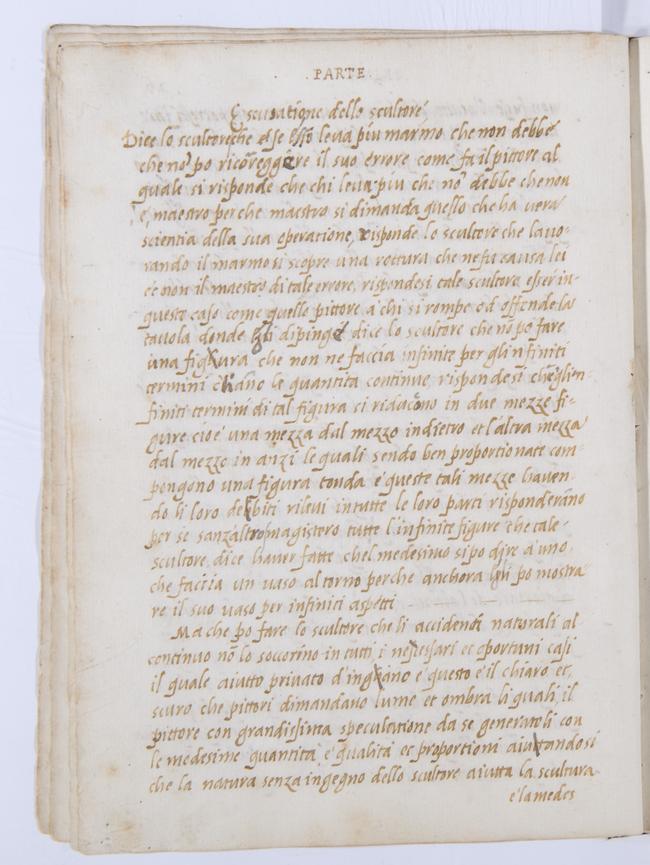 . PARTE.
Escusatione dello scultore
Dice lo scultoreche else esso leva piu marmo che non debbe
che no po ricoreggere il suo errore come fa il pittore al
quale si risponde che chi leva piu che no debbe che non
e, maestro perche maestro si dimanda quello che ha vera
scientia della sua operatione, risponde lo scultore che lavo-
rando il marmo si scopre una rottura che ne fu causa lei
e e non il maestro di tale errore, rispondesi tale scultore esser in
questo caso come quello pittore a chi si rompe et offende la
tavola donde gli dipinge dice lo scultore che no po fare
una figura che non ne faccia infinite per gli nfiniti
termini chano le quantita continue, rispondesi che glien-
finiti termini di tal figura ci riducono in due mezze fi-
gure cioè una mezza dal mezzo indietro et l'altra mezza
dal mezzo in anzi le quali sendo ben proportionate com-
pongono una figura tonda e queste tali mezze haven-
do li loro debiti rilievi intutte le loro parti risponderano
per se sanzaltro magistero tutte l'infinite figure che tale
scultore, dice haver fatte chel medesimo si po dire a uno
che faccia un vaso al torno perche anchora gli po mostra
re il suo vaso per infiniti aspetti
Ma che po fare lo scultore che li accidenti naturali al
continuo no lo soccorino in tutti i necessari et oportuni casi
il quale aiutto privato d'inganno e questo e il chiaro et,
scuro che pittori dimandano lume et ombra li quali, il
pittore con grandissima speculatione da se generatoli con
le medesime quantita, e qualita et proportioni aiuttandosi
che la natura senza ingegno dello scultore aiutta la scultura
e la medes